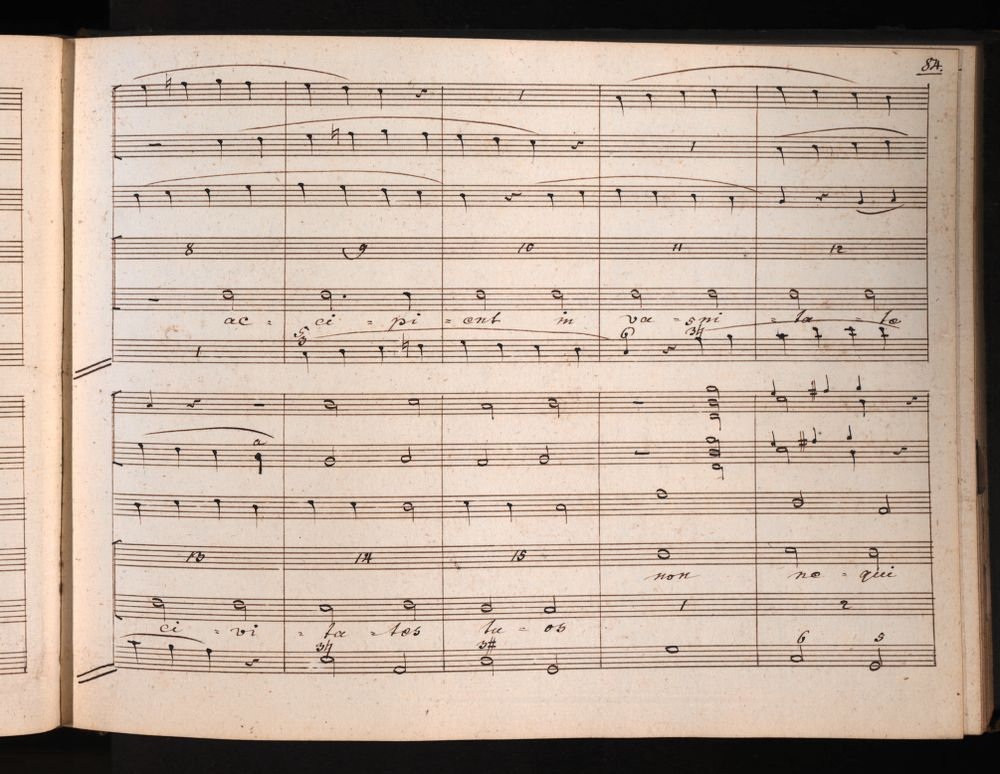 84.
1
1
8 9 10 11 12
ac = ci = pi = ent in va = ni = ta = te
1 5 3 6 5 3♮
a
13 14 15
non ne = qui
1 2
ci = vi = ta = tes tu = os
3♮ 3# 6 5